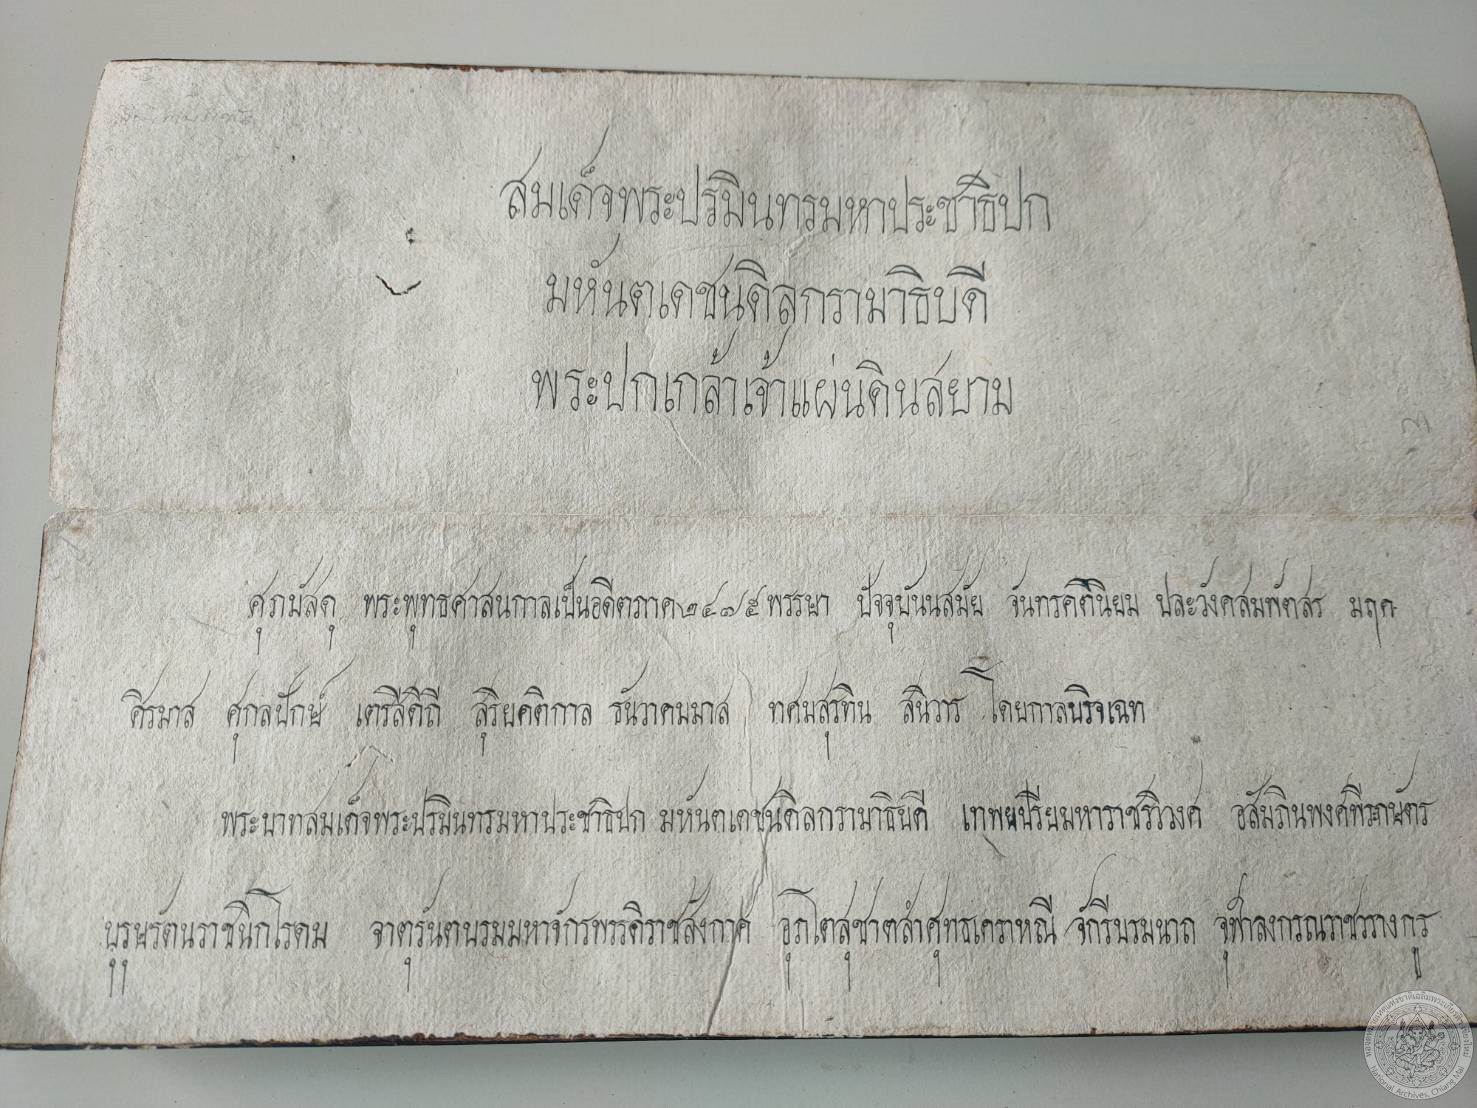 สมเด็จพระปรมินทรมหาประชาธิปก
มหันตเดชนดิลกรามาธิบดี
พระปกเกล้าเจ้าแผ่นดินสยาม
ศุภมัสดุ พระพุทธศาสนกาลเป็นอดีตภาค ๒๔๗๕ พรรษา ปัจจุบันนสมัย จันทรคตินิยม ปละวังคสมพัตสร มฤค
ศิรมาส ศุกลปักษ์ เตรีสีดิถี สุริยคติกาล ธันวาคมมาส ทศมสุรทิน สนิวาร โดยกาลบริจเฉท
พระบาทสมเด็จพระปรมินทรมหาประชาธิปก มหันตเดชนดิลกรามาธิบดี เทพยปรียมหาราชรวิวงศ์ อสัมภินพงศพีระกษัตร
บุรุษรัตนราชนิกโรดม จาตุรันตบรมมหาจักรพรรดิราชสังกาศ อุภโตสุชาตสำศุทธเคราหณี จักรีบรมนาถ จุฬาลงกรณราชวรางกูร
หอจดหมายเหตุแห่งชาติเฉลิมพระเกียรติ
National Archives, Chiang Mai